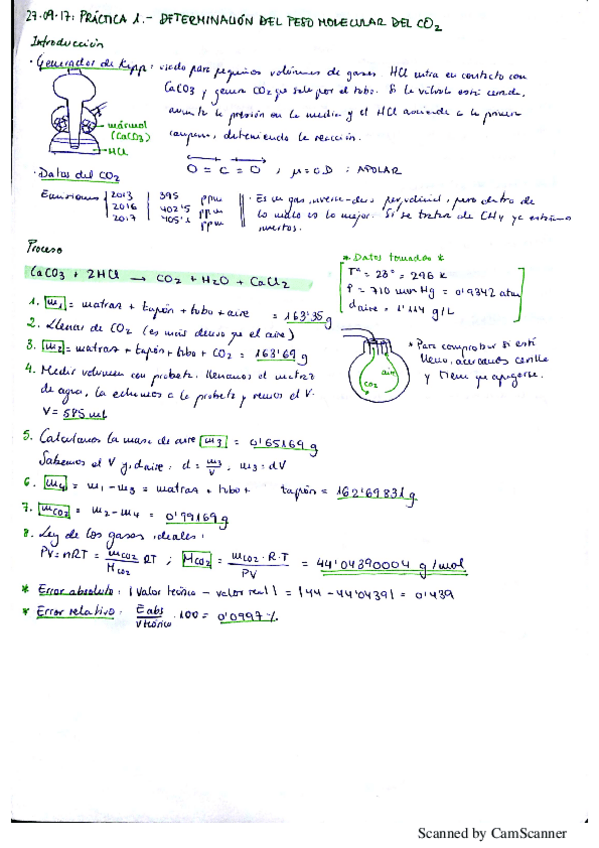 27.09.17: PRÁCTICA 1.- DETERMINACIÓN DEL PESO MOLECULAR DEL CO2
Introducción
· Generador de Kipp: usado para pequeños volúmenes de gases. HCl entra en contacto con
CaCO3 y genera CO2 que sale por el tubo. Si la válvula está cerrada,
aumenta la presión en la media y el HCl asciende a la primera
deteniendo la reacción.
mármol
(CaCO3)
HCl
O = C = O , μ = 0D : APOLAR
· Datos del CO2
Emisiones 2013 | 395 ppm
2016 | 402'5 ppm
2017 | 405'1 ppm
· Es un gas pero dentro de
lo malo es lo mejor. Si se tratara de CH4 ya estaríamos
muertos.
Proceso
CaCO3 + 2HCl → CO2 + H2O + CaCl2
* Datos tomados *
Tª = 23° = 296 K
P = 710 mm Hg = 0'9342 atm
daire = 1'114 g/L
1. m1 = matraz + tapón + tubo + aire = 163'35 g
2. Llenar de CO2 (es más denso que el aire)
3. m2 = matraz + tapón + tubo + CO2 = 163'69 g
4. Medir volumen con probeta. Llenamos el matraz
de agua, la echamos a la probeta y vemos el V.
V = 585 ml
aire
CO2
* Para comprobar si está
lleno, acercamos cerilla
y tiene que apagarse.
5. Calculamos la masa de aire m3 = 0'65169 g
Sabemos el V y daire: d = m3/V , m3 = dV
6. m4 = m1 - m3 = matraz + tubo + tapón = 162'69831 g
7. mCO2 = m2 - m4 = 0'99169 g
8. Ley de los gases ideales:
PV = nRT = mCO2/MCO2 RT ; MCO2 = mCO2·R·T/PV = 44'04390004 g/mol
* Error absoluto: | Valor teórico - valor real | = |44 - 44'0439| = 0'439
* Error relativo: Eabs/Vteórico · 100 = 0'0997 %
Scanned by CamScanner